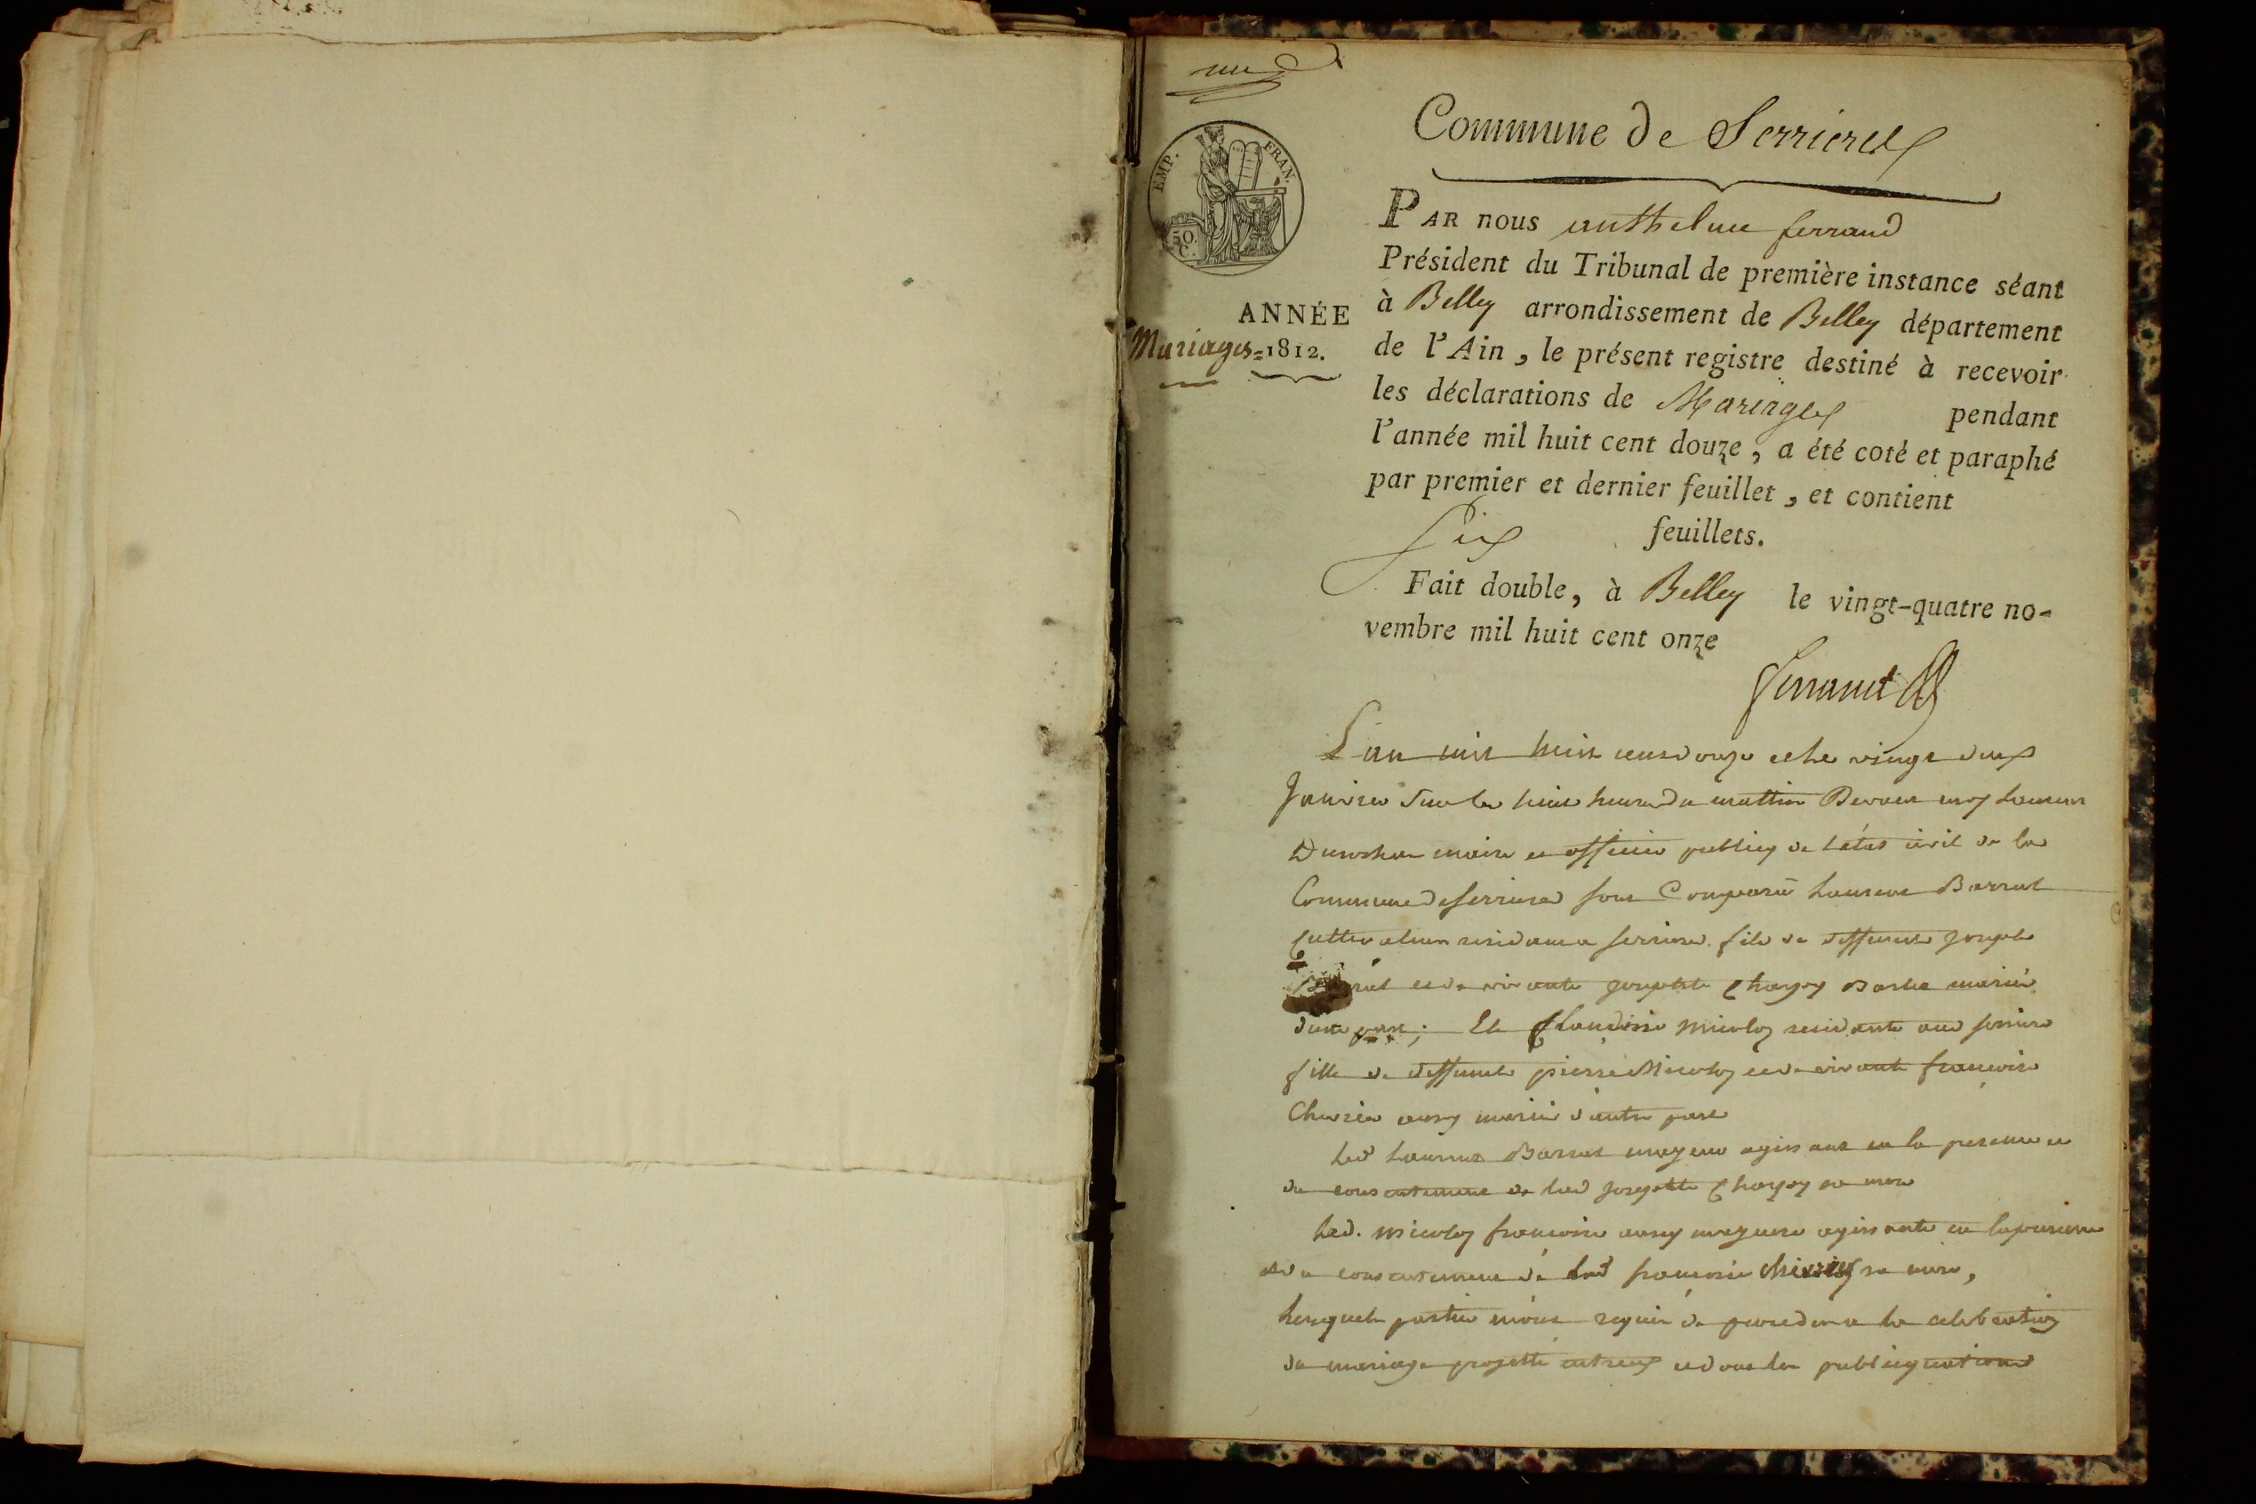 Commune de Serrieres
EMP. FRAN.
50. C.
PAR nous anthelme ferrand
Président du Tribunal de première instance séant
à Belley arrondissement de Belley département
de l'Ain, le présent registre destiné à recevoir
les déclarations de Mariages pendant
l'année mil huit cent douze, a été coté et paraphé
par premier et dernier feuillet, et contient
Six feuillets.
Fait double, à Belley le vingt-quatre no-
vembre mil huit cent onze
Ferrand
ANNÉE
Mariages = 1812.
L'an mil huit cent douze et le vingt deux
Janvier sur les huit heures du mattin Devant moy Laurent
maire et officier publicq de l'état civil de la
Commune de serrieres sont Comparu Laurent Barral
Cultivateur residant a serrieres fils de deffunct joseph
et de vivante josephte Chapoy Barbe mariés
d'une part; Et Claudine Micoloz residante aud serriere
fille de deffunct pierre Micoloz et de vivante francoise
aussy mariés d'autre part
Led Laurent Barral mageur agissant en la presence et
du consentement de lad josephte Chapoy sa mere
Lad. Micoloz francoise aussy mageure agissante en la presence
et du consentement de lad francoise sa mere,
Lesquels parties m'ont requis de proceder a la celebration
du mariage projetté entreux et dont les publicquations